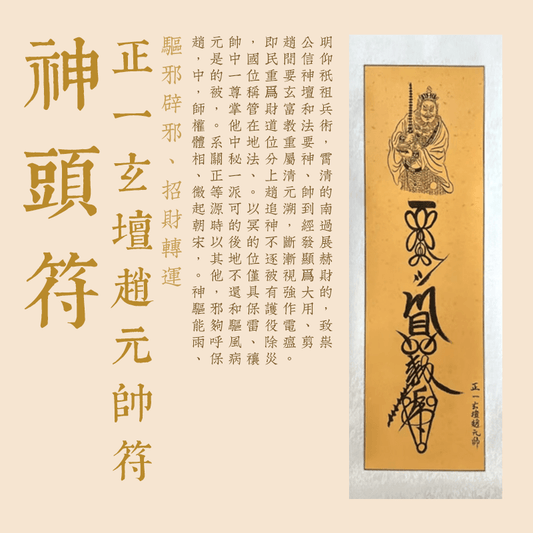 神頭符
正一玄壇趙元帥符
驅邪辟邪、招財轉運
趙元帥，即趙公明
，是中國民間信仰
中的一位重要神祇
，被尊稱爲玄壇祖
師，掌管財富和兵
權。他在道教法術
體系中地位重要，
相關秘法分屬神霄
、正一、上清、清
微等派。趙元帥的
起源可以追溯到南
朝時的冥神，經過
宋以後的逐漸發展
，其地位不斷顯赫
。他不僅被視爲財
神，還具有強大的
驅邪和保護作用，
能夠驅雷役電、致
雨呼風、除瘟剪祟
、保病禳災。
正一玄壇趙元帥